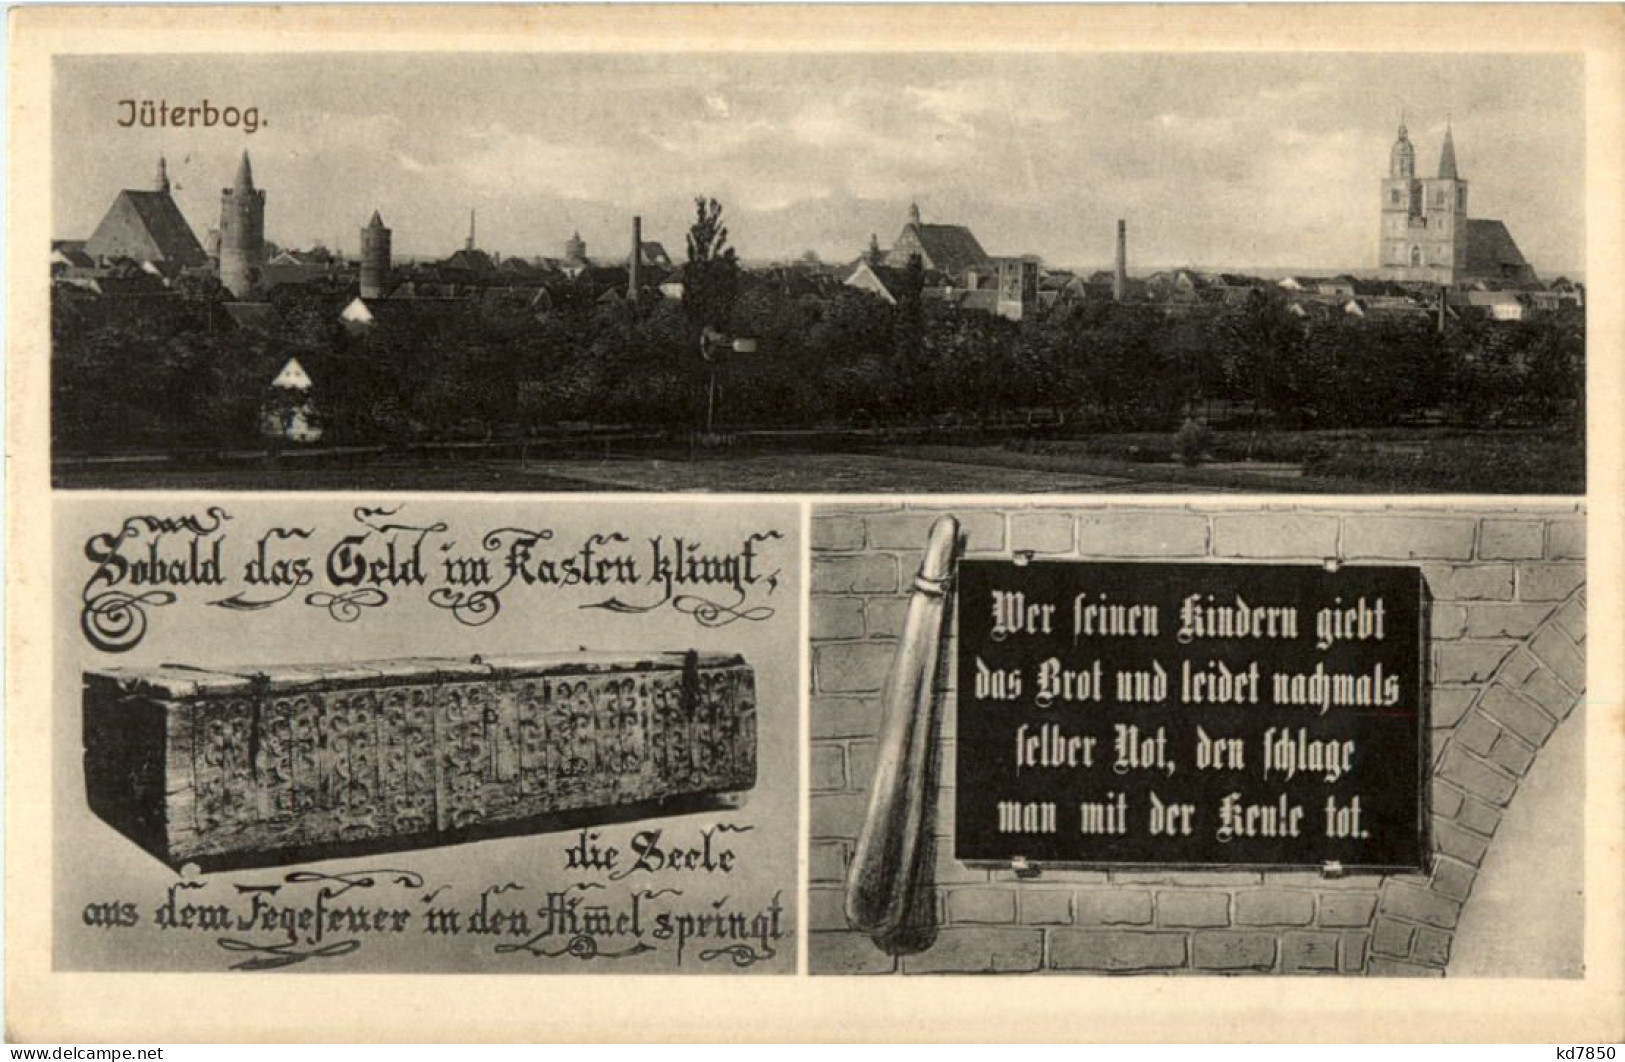 Jüterbog.
Sobald das Geld im Kasten klingt,
die Seele
aus dem Fegefeuer in den Him̅el springt
Wer seinen Kindern giebt
das Brot und leidet nachmals
selber Not, den schlage
man mit der Keule tot.
www.delcampe.net
kd7850